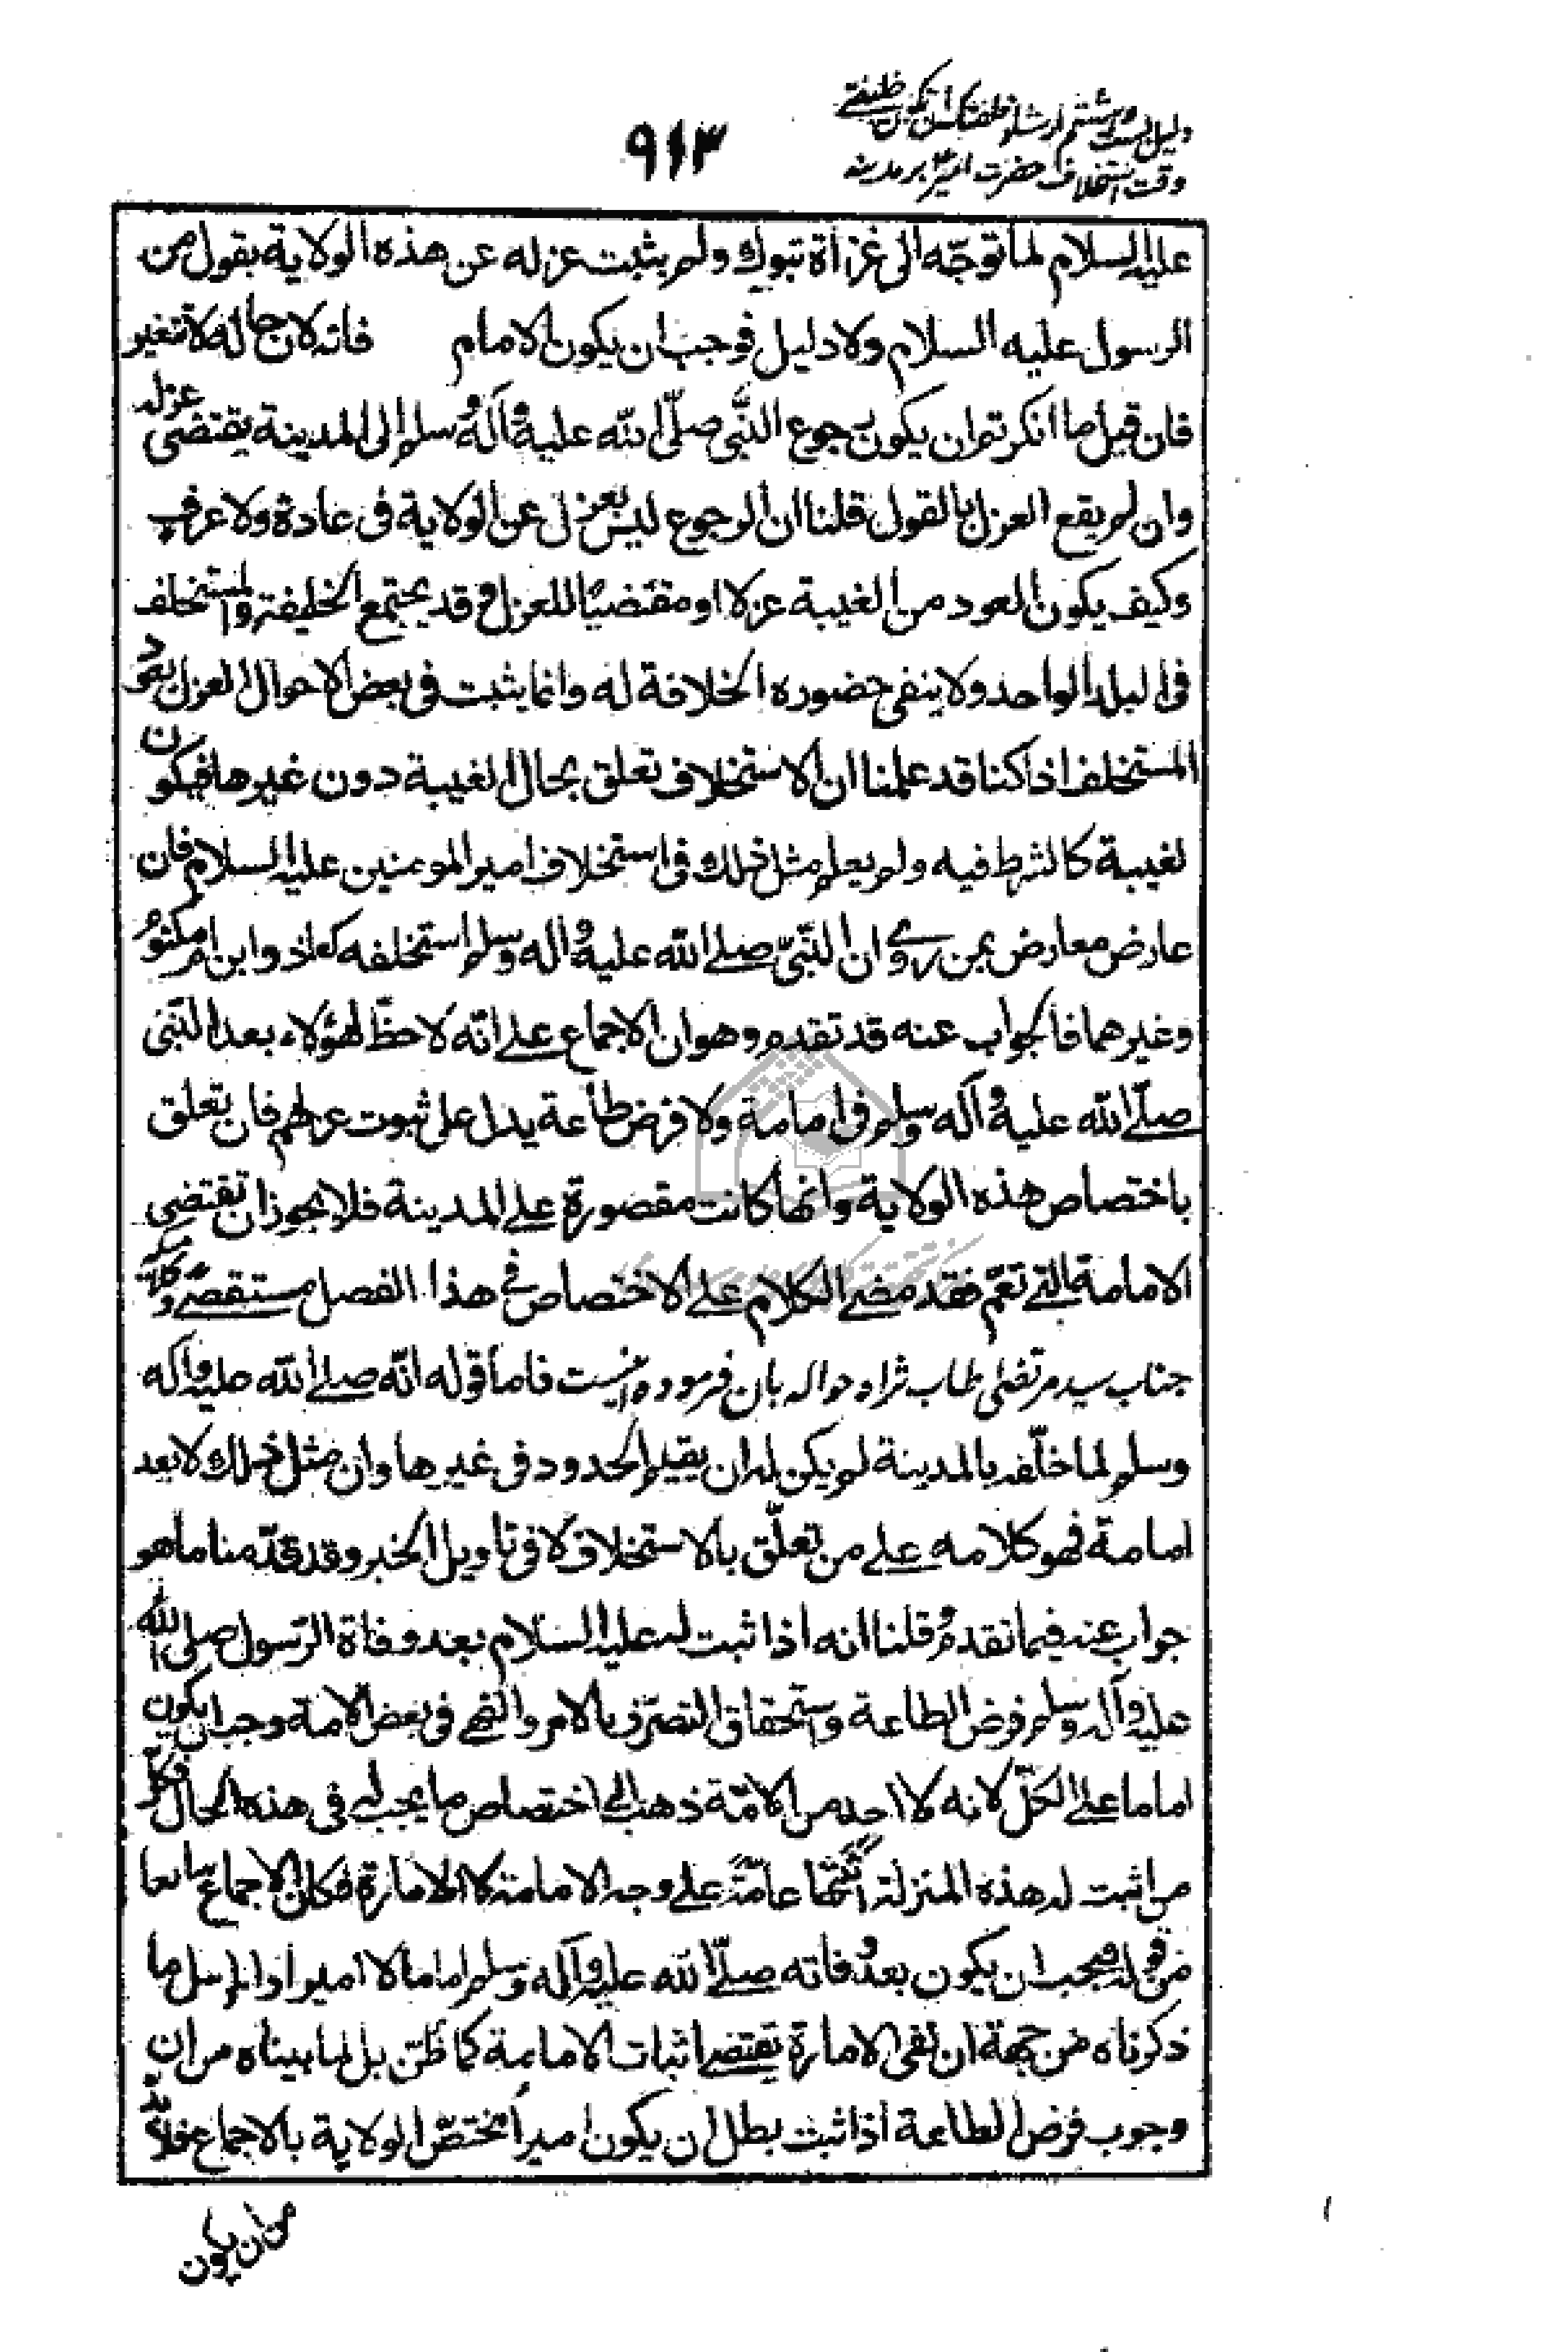 دلیل بست و هشتم ارشاد خلفتك ان تكون خلیفتی
وقت استخلاف حضرت امیرؑ بر مدینه
۹۱۳
علیه السلام لما توجّه الی غزاة تبوك ولم یثبت عزله عن هذه الولایة بقول من
الرسول علیه السلام ولا دلیل فوجب ان یکون الامام فانه لان حاله لا تتغیر
فان قیل ما انکرتم ان یکون رجوع النّبی صلّی الله علیه وآله وسلم الی المدینة یقتضی عزله
وان لم یقع العزل بالقول قلنا ان الرجوع لیس بعزل عن الولایة فی عادة ولا عرف
وکیف یکون العود من الغیبة عزلا او مقتضیًا للعزل و قد یجتمع الخلیفة والمستخلف
فی البلد الواحد ولا ینفی حضوره الخلافة له وانما یثبت فی بعض الاحوال العزل بعود
المستخلف اذا کنا قد علمنا ان الاستخلاف تعلق بحال الغیبة دون غیرها فیکون
لغیبة کالشرط فیه ولم یعلم مثل ذلك فی استخلاف امیر المومنین علیه السلام فان
عارض معارض بمن روی ان النّبیّ صلی الله علیه وآله وسلم استخلفه کمعاذ وابن ام مکتوم
وغیرهما فالجواب عنه قد تقدم وهو ان الاجماع علی انّه لا حظّ لهؤلاء بعد النّبی
صلّی الله علیه وآله وسلم فی امامة ولا فرض طاعة یدل علی ثبوت عزلهم فان تعلق
باختصاص هذه الولایة وانها کانت مقصورة علی المدینة فلا یجوز ان تقتضی
الامامة التی تعمّ فقد مضی الکلام علی الاختصاص فی هذا الفصل مستقصی وکلامیکه
جناب سید مرتضی طاب ثراه حواله بان فرموده اینست فاما قوله انّه صلی الله علیه وآله
وسلم لما خلّفه بالمدینة لم یکن له ان یقیم الحدود فی غیرها وان مثل ذلك لا یعد
امامة فهو کلامه علی من تعلّق بالاستخلاف لا فی تاویل الخبر وقد قدّمنا ما هو
جواب عنه فیما تقدم و قلنا انه اذا ثبت له علیه السلام بعد وفاة الرّسول صلی الله
علیه وآله وسلم فرض الطاعة واستحقاق التصرّف بالامر والنهی فی بعض الامة وجب ان یکون
اماما علی الکلّ لانه لا احد من الامّة ذهب الی اختصاص ما یجب له فی هذه الحال فکلّ
من اثبت له هذه المنزلة اثبتها عامّة علی وجه الامامة لا الامارة فکان الاجماع مانعا
من قوله فیجب ان یکون بعد وفاته صلّی الله علیه وآله وسلم اماما لا امیرا واذا لم یسل ما
ذکرناه من جهة ان نفی الامارة یقتضی اثبات الامامة کما ظنّ بل لما بیناه من ان
وجوب فرض الطاعة اذا ثبت بطل ان یکون امیرًا مختصّ الولایة بالاجماع فلا بدّ
من ان یکون